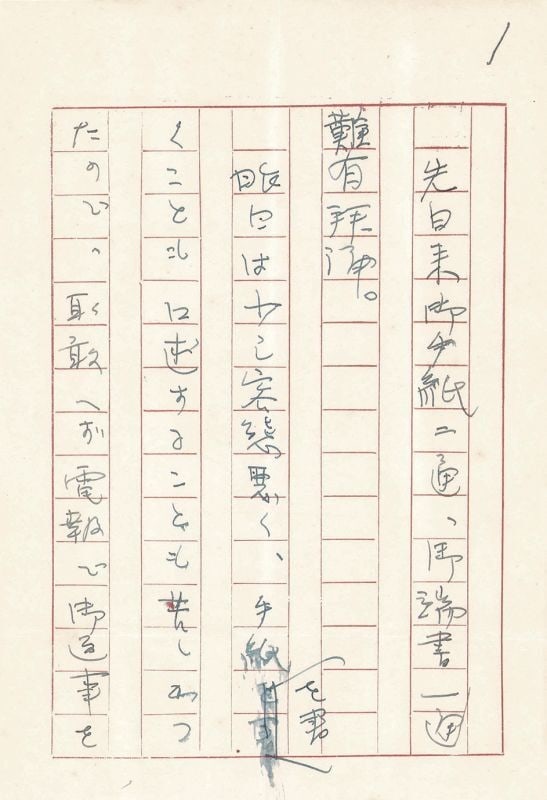 1
先日来御手紙二通、御端書一通
難有拝誦。
昨日は少し容態悪く、手紙を書
くことも口述することも苦しかつ
たので、取敢へず電報で御返事を